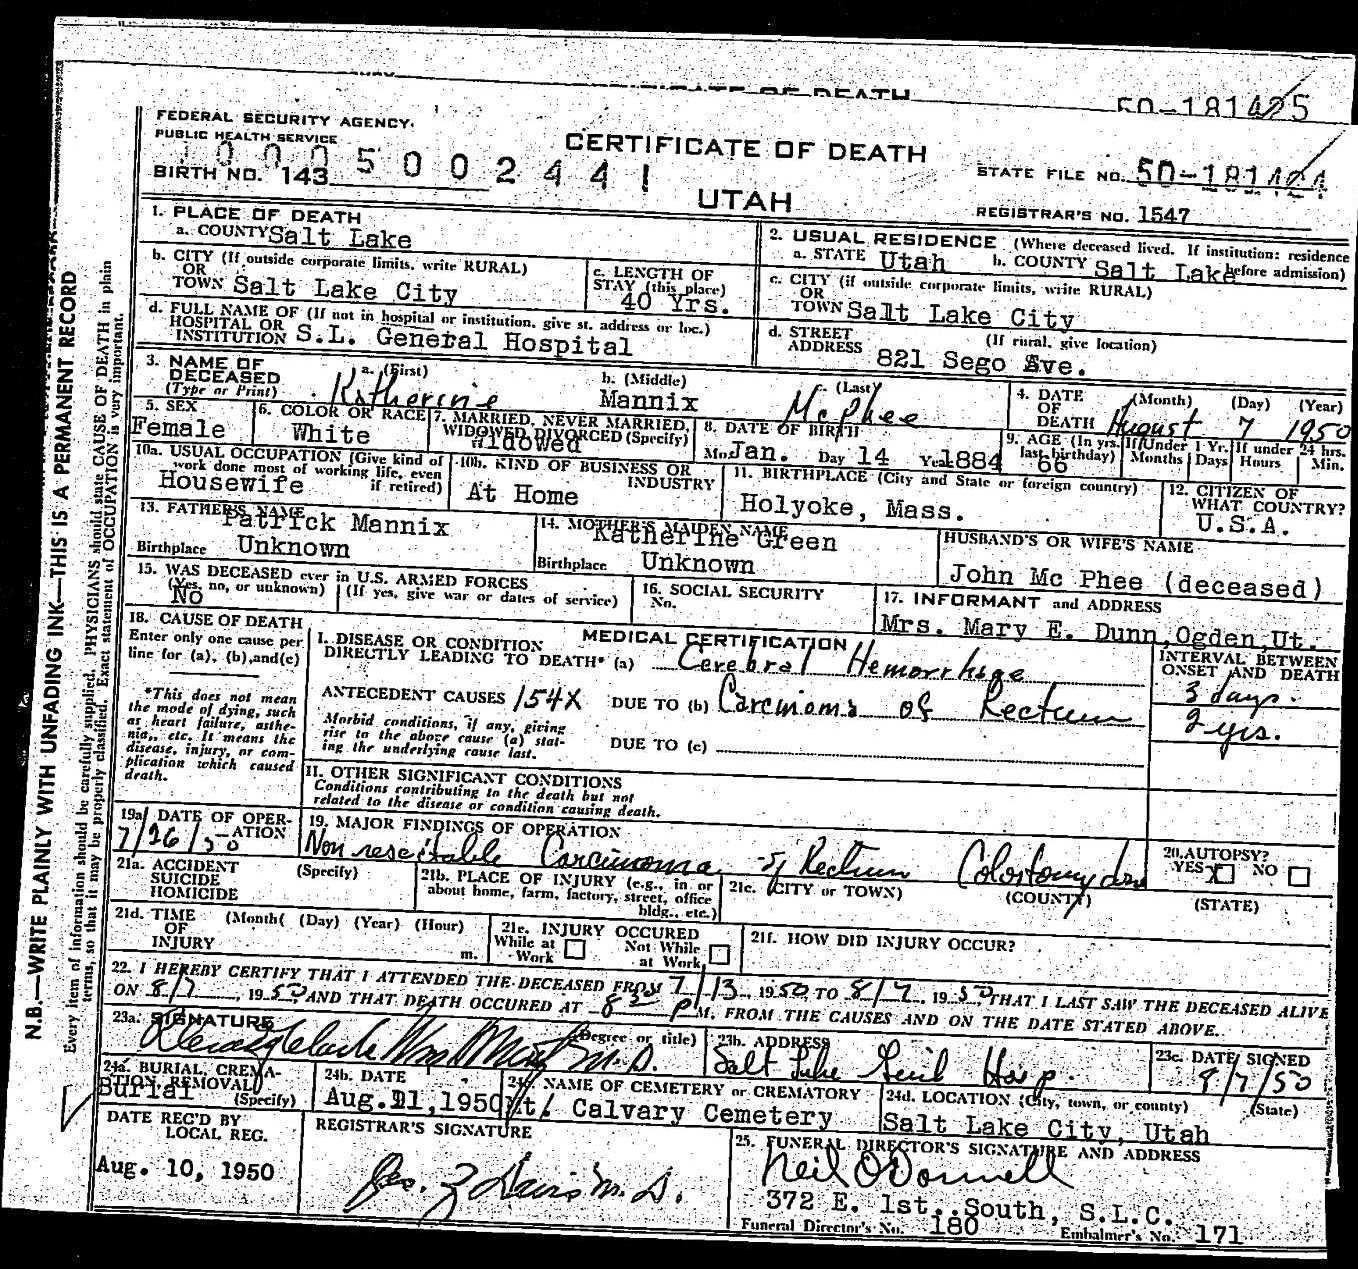 50-181425
FEDERAL SECURITY AGENCY.
PUBLIC HEALTH SERVICE
CERTIFICATE OF DEATH
STATE FILE NO. 50-181424
BIRTH NO. 143
10005002441
UTAH
REGISTRAR'S NO. 1547
N.B.—WRITE PLAINLY WITH UNFADING INK—THIS IS A PERMANENT RECORD
Every item of information should be carefully supplied. PHYSICIANS should state CAUSE OF DEATH in plain
terms, so that it may be properly classified. Exact statement of OCCUPATION is very important.
1. PLACE OF DEATH
a. COUNTY Salt Lake
2. USUAL RESIDENCE (Where deceased lived. If institution: residence before admission)
a. STATE Utah b. COUNTY Salt Lake
b. CITY (If outside corporate limits, write RURAL)
OR
TOWN Salt Lake City
c. LENGTH OF
STAY (this place)
40 Yrs.
c. CITY (if outside corporate limits, write RURAL)
OR
TOWN Salt Lake City
d. FULL NAME OF (If not in hospital or institution, give st. address or loc.)
HOSPITAL OR
INSTITUTION S.L. General Hospital
d. STREET (If rural, give location)
ADDRESS 821 Sego Ave.
3. NAME OF
DECEASED
(Type or Print)
a. (First) Katherine
b. (Middle) Mannix
c. (Last) McPhee
4. DATE OF DEATH (Month) (Day) (Year)
August 7 1950
5. SEX
Female
6. COLOR OR RACE
White
7. MARRIED, NEVER MARRIED,
WIDOWED DIVORCED (Specify)
Widowed
8. DATE OF BIRTH
Mo. Jan. Day 14 Year 1884
9. AGE (In yrs. last birthday) 66
If Under 1 Yr. Months Days
If under 24 hrs. Hours Min.
10a. USUAL OCCUPATION (Give kind of
work done most of working life, even
if retired)
Housewife
10b. KIND OF BUSINESS OR
INDUSTRY
At Home
11. BIRTHPLACE (City and State or foreign country)
Holyoke, Mass.
12. CITIZEN OF
WHAT COUNTRY?
U.S.A.
13. FATHER'S NAME
Patrick Mannix
Birthplace Unknown
14. MOTHER'S MAIDEN NAME
Katherine Green
Birthplace Unknown
HUSBAND'S OR WIFE'S NAME
John Mc Phee (deceased)
15. WAS DECEASED ever in U.S. ARMED FORCES
(Yes, no, or unknown) (If yes, give war or dates of service)
No
16. SOCIAL SECURITY
No.
17. INFORMANT and ADDRESS
Mrs. Mary E. Dunn, Ogden, Ut.
18. CAUSE OF DEATH
Enter only one cause per
line for (a), (b), and (c)
*This does not mean
the mode of dying, such
as heart failure, asthe-
nia, etc. It means the
disease, injury, or com-
plication which caused
death.
MEDICAL CERTIFICATION
I. DISEASE OR CONDITION
DIRECTLY LEADING TO DEATH* (a) Cerebral Hemorrhige
INTERVAL BETWEEN
ONSET AND DEATH
3 days.
ANTECEDENT CAUSES 154X DUE TO (b) Carcinoma of Rectum
2 yrs.
Morbid conditions, if any, giving
rise to the above cause (a) stat-
ing the underlying cause last.
DUE TO (c)
II. OTHER SIGNIFICANT CONDITIONS
Conditions contributing to the death but not
related to the disease or condition causing death.
19a. DATE OF OPER-
ATION
7/26/50
19. MAJOR FINDINGS OF OPERATION
Non resectable Carcinoma of Rectum Colostomy done
20. AUTOPSY?
YES X NO
21a. ACCIDENT (Specify)
SUICIDE
HOMICIDE
21b. PLACE OF INJURY (e.g., in or
about home, farm, factory, street, office
bldg., etc.)
21c. (CITY or TOWN) (COUNTY) (STATE)
21d. TIME (Month( (Day) (Year) (Hour)
OF
INJURY m.
21e. INJURY OCCURED
While at Work
Not While at Work
21f. HOW DID INJURY OCCUR?
22. I HEREBY CERTIFY THAT I ATTENDED THE DECEASED FROM 7/13, 1950, TO 8/7, 1950, THAT I LAST SAW THE DECEASED ALIVE
ON 8/7, 1950 AND THAT DEATH OCCURED AT 8 30 P M. FROM THE CAUSES AND ON THE DATE STATED ABOVE.
23a. SIGNATURE (Degree or title)
M.D.
23b. ADDRESS
Salt Lake Genl Hosp.
23c. DATE SIGNED
8/7/50
24a. BURIAL, CREMA-
TION, REMOVAL
(Specify)
Burial
24b. DATE
Aug. 11, 1950
24c. NAME OF CEMETERY or CREMATORY
Mt. Calvary Cemetery
24d. LOCATION (City, town, or county) (State)
Salt Lake City, Utah
DATE REC'D BY
LOCAL REG.
Aug. 10, 1950
REGISTRAR'S SIGNATURE
M.D.
25. FUNERAL DIRECTOR'S SIGNATURE AND ADDRESS
Neil O'Donnell
372 E. 1st. South, S.L.C.
Funeral Director's No. 180 Embalmer's No. 171